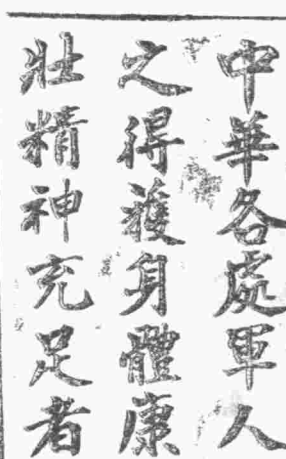 中華各處軍人
之得獲身體康
壯精神充足者